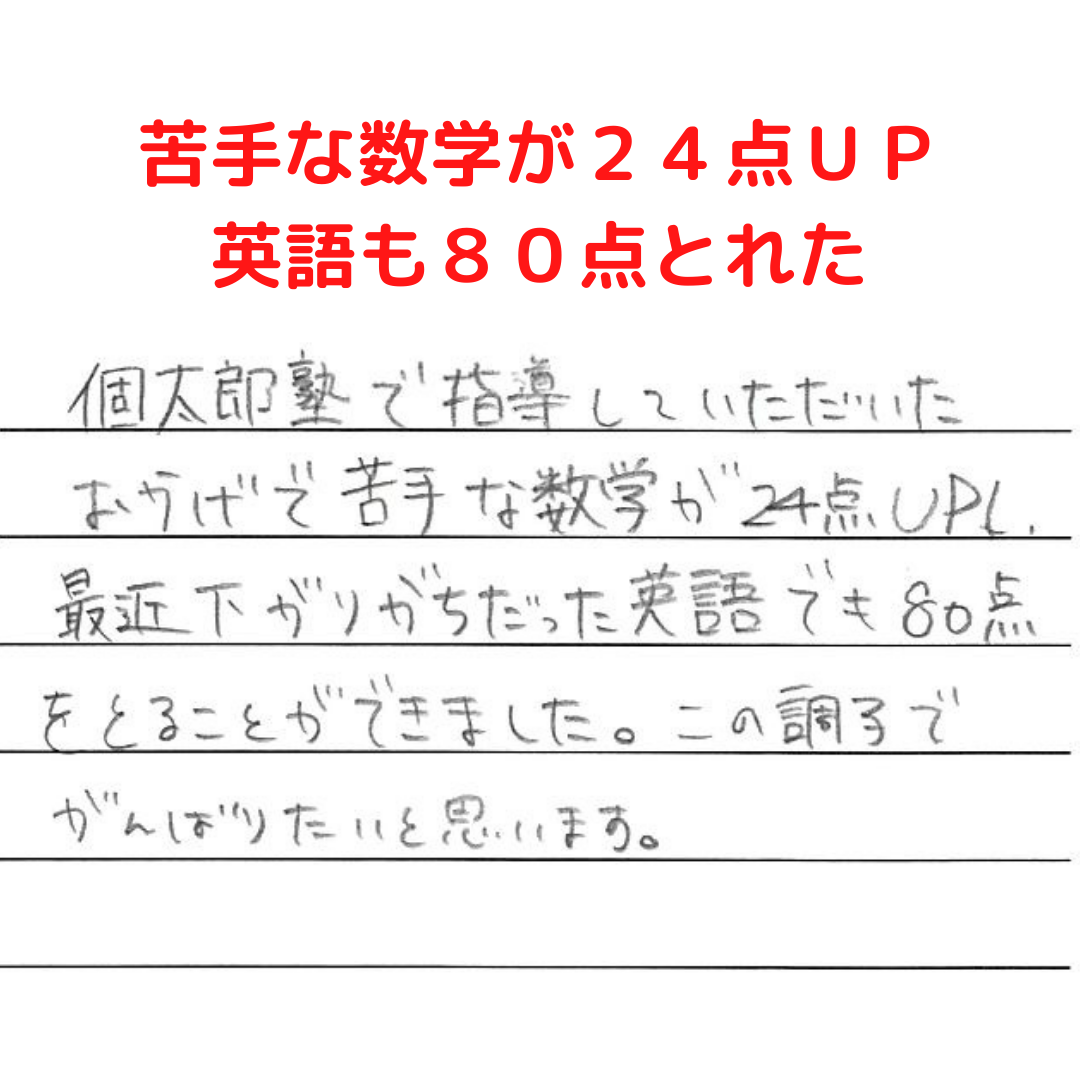 苦手な数学が２４点ＵＰ
英語も８０点とれた
個太郎塾で指導していただいた
おかげで苦手な数学が24点UPし、
最近下がりがちだった英語でも80点
をとることができました。この調子で
がんばりたいと思います。